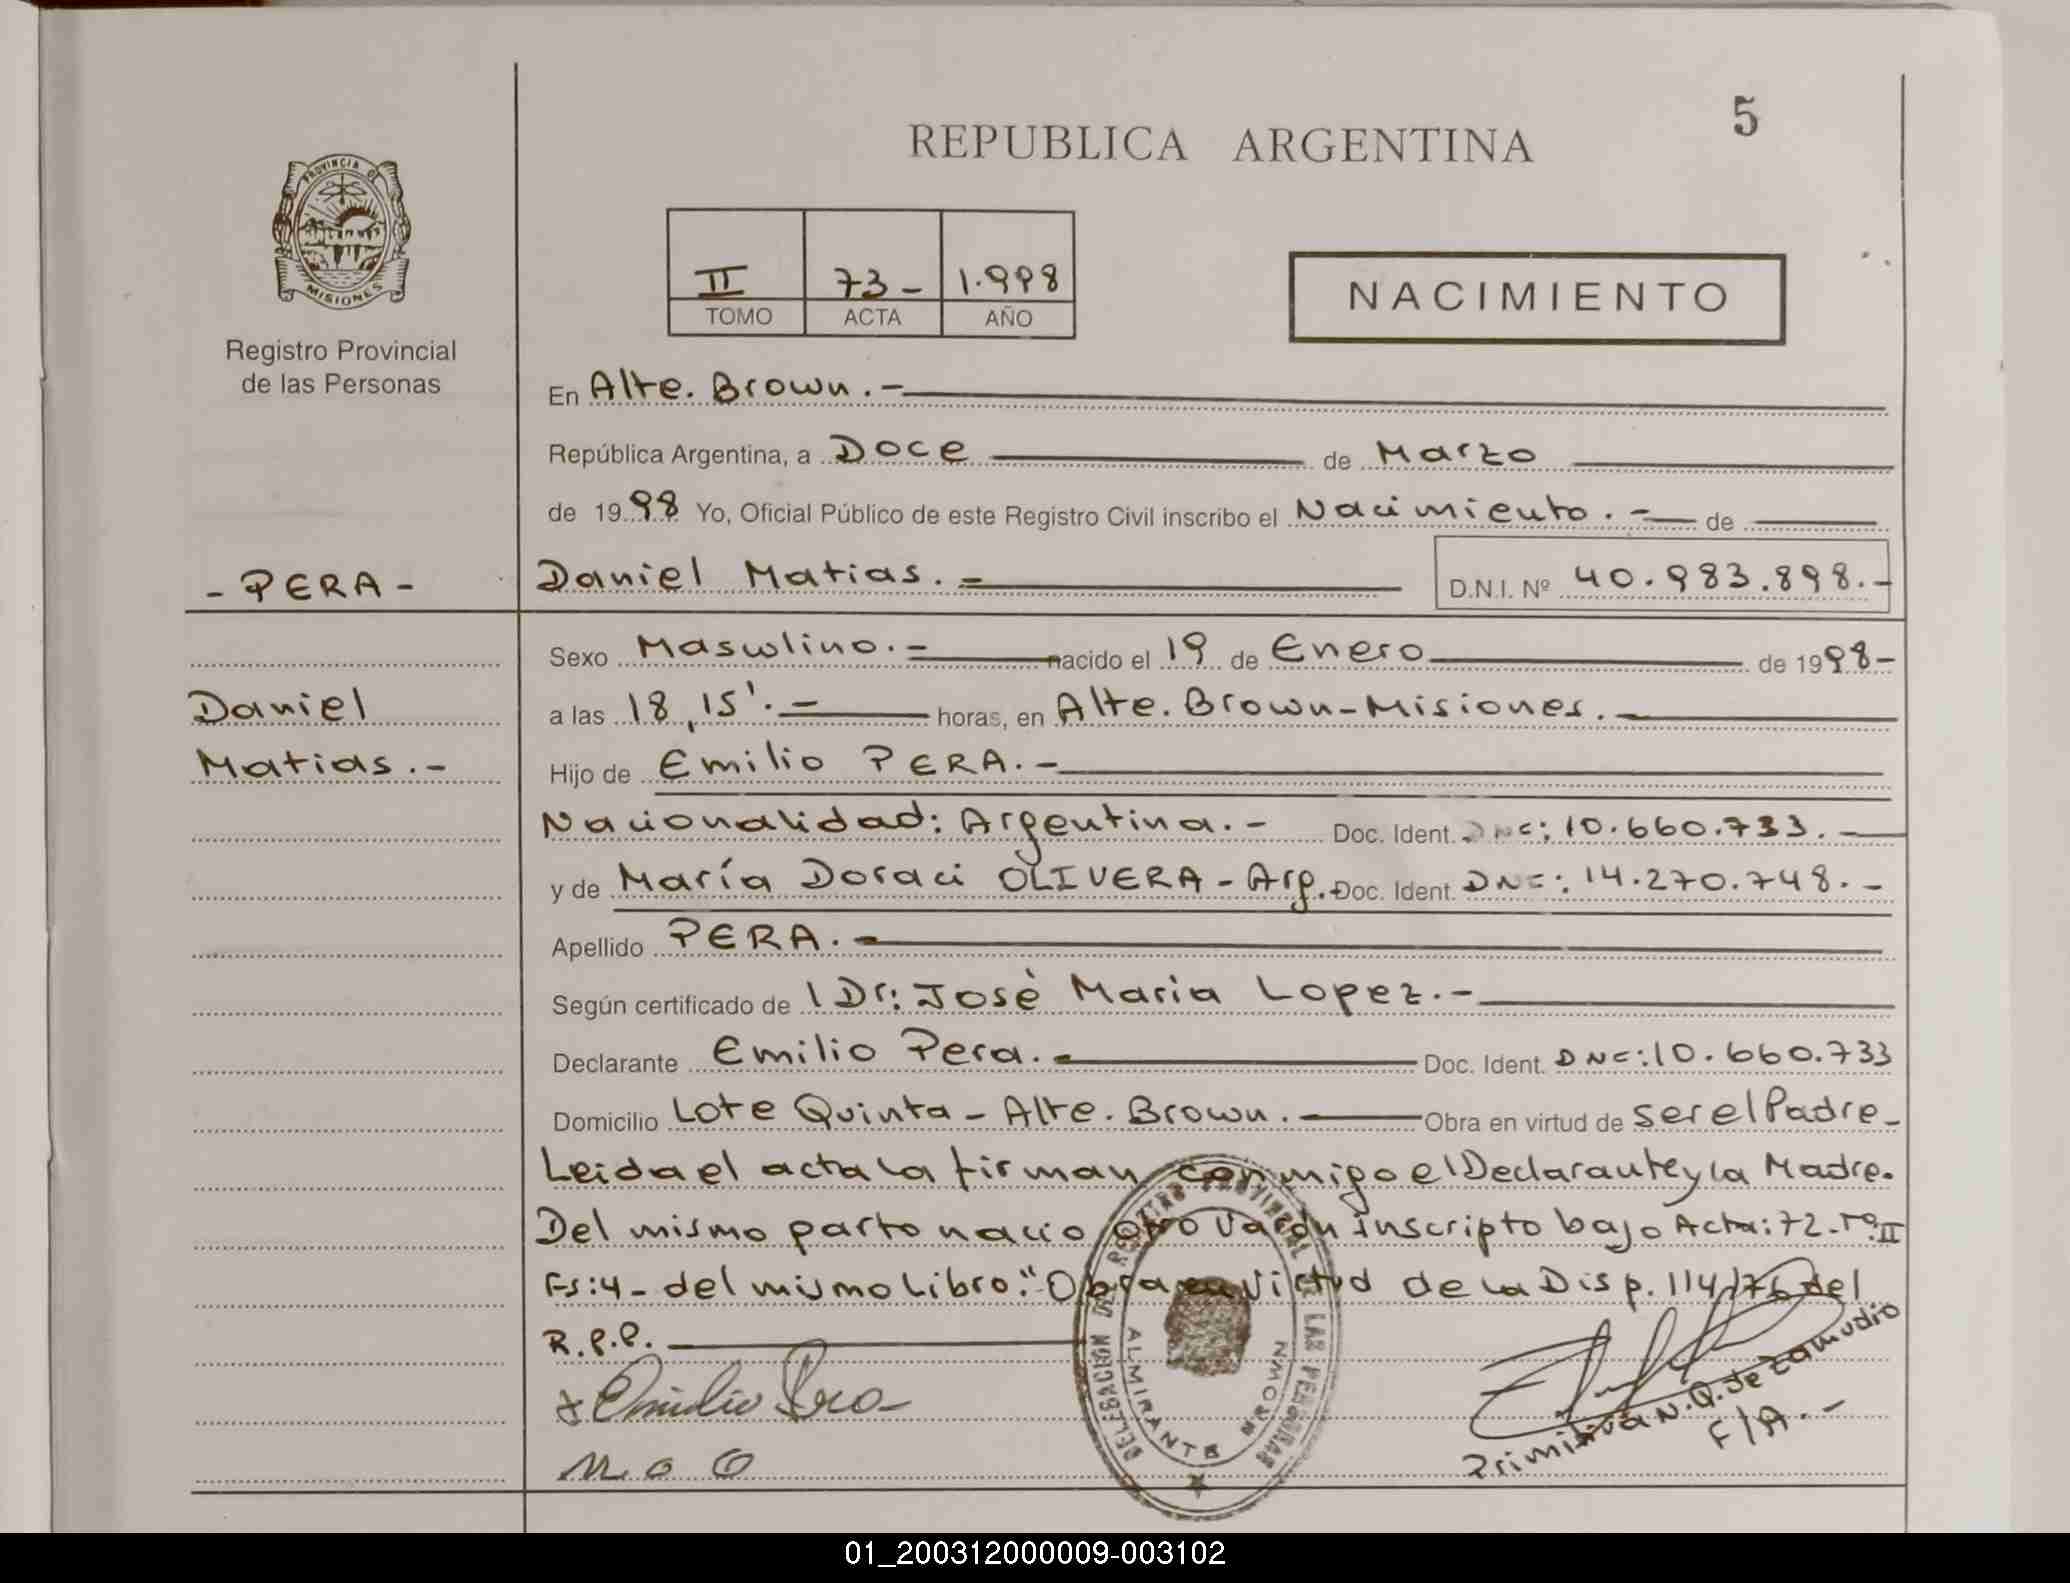 5
REPUBLICA ARGENTINA
PROVINCIA DE
MISIONES
Registro Provincial
de las Personas
II 73- 1.998
TOMO ACTA AÑO
NACIMIENTO
En Alte. Brown.-
República Argentina, a Doce de Marzo
de 1998 Yo, Oficial Público de este Registro Civil inscribo el Nacimiento.- de
- PERA -
Daniel Matias.- D.N.I. Nº 40.983.898.-
Sexo Masculino.- nacido el 19 de Enero de 1998-
Daniel
a las 18,15'.- horas, en Alte. Brown-Misiones.-
Matias.-
Hijo de Emilio PERA.-
Nacionalidad: Argentina.- Doc. Ident. DNI: 10.660.733.-
y de María Doraci OLIVERA - Arg. Doc. Ident. DNI: 14.270.748.-
Apellido PERA.-
Según certificado de l Dr: José Maria Lopez.-
Declarante Emilio Pera.- Doc. Ident. DNI: 10.660.733
Domicilio Lote Quinta - Alte. Brown.- Obra en virtud de ser el Padre-
Leida el acta la firman conmigo el Declarante y la Madre.
Del mismo parto nacio otro Varón inscripto bajo Acta: 72-Tº: II
Fs: 4- del mismo Libro." Obra en Victud de la Disp. 114/76 del
R.P.P.
Emilio Pera
M. O O
Primitiva N. Q. de Zamudio
F/A.-
DELEGACION DEL REGISTRO PROVINCIAL DE LAS PERSONAS
ALMIRANTE BROWN
01_200312000009-003102